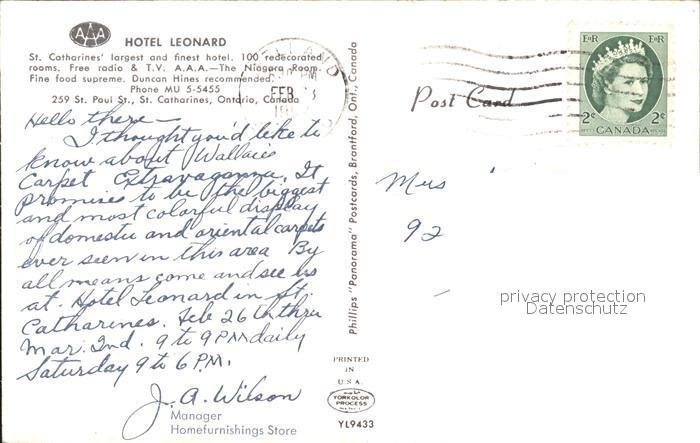 AAA
HOTEL LEONARD
St. Catharines' largest and finest hotel. 100 redecorated
rooms. Free radio & T.V. A.A.A.—The Niagara Room.
Fine food supreme. Duncan Hines recommended.
Phone MU 5-5455
259 St. Paul St., St. Catharines, Ontario, Canada
Hello there—
I thought you'd like to
know about Wallace
Carpet Extravaganza. It
promises to be the biggest
and most colorful display
of domestic and oriental carpets
ever seen in this area By
all means come and see us
at. Hotel Leonard in St.
Catharines. Feb 26th thru
Mar. 2nd. 9 to 9 PM daily
Saturday 9 to 6 P.M.
J. A. Wilson
Manager
Homefurnishings Store
Phillips "Panorama" Postcards, Brantford, Ont., Canada
PRINTED
IN
U.S.A.
YORKOLOR
PROCESS
YL9433
WELLAND
PM
FEB
Post Card
EIIR EIIR
2¢ 2¢
CANADA
Mrs
92
privacy protection
Datenschutz